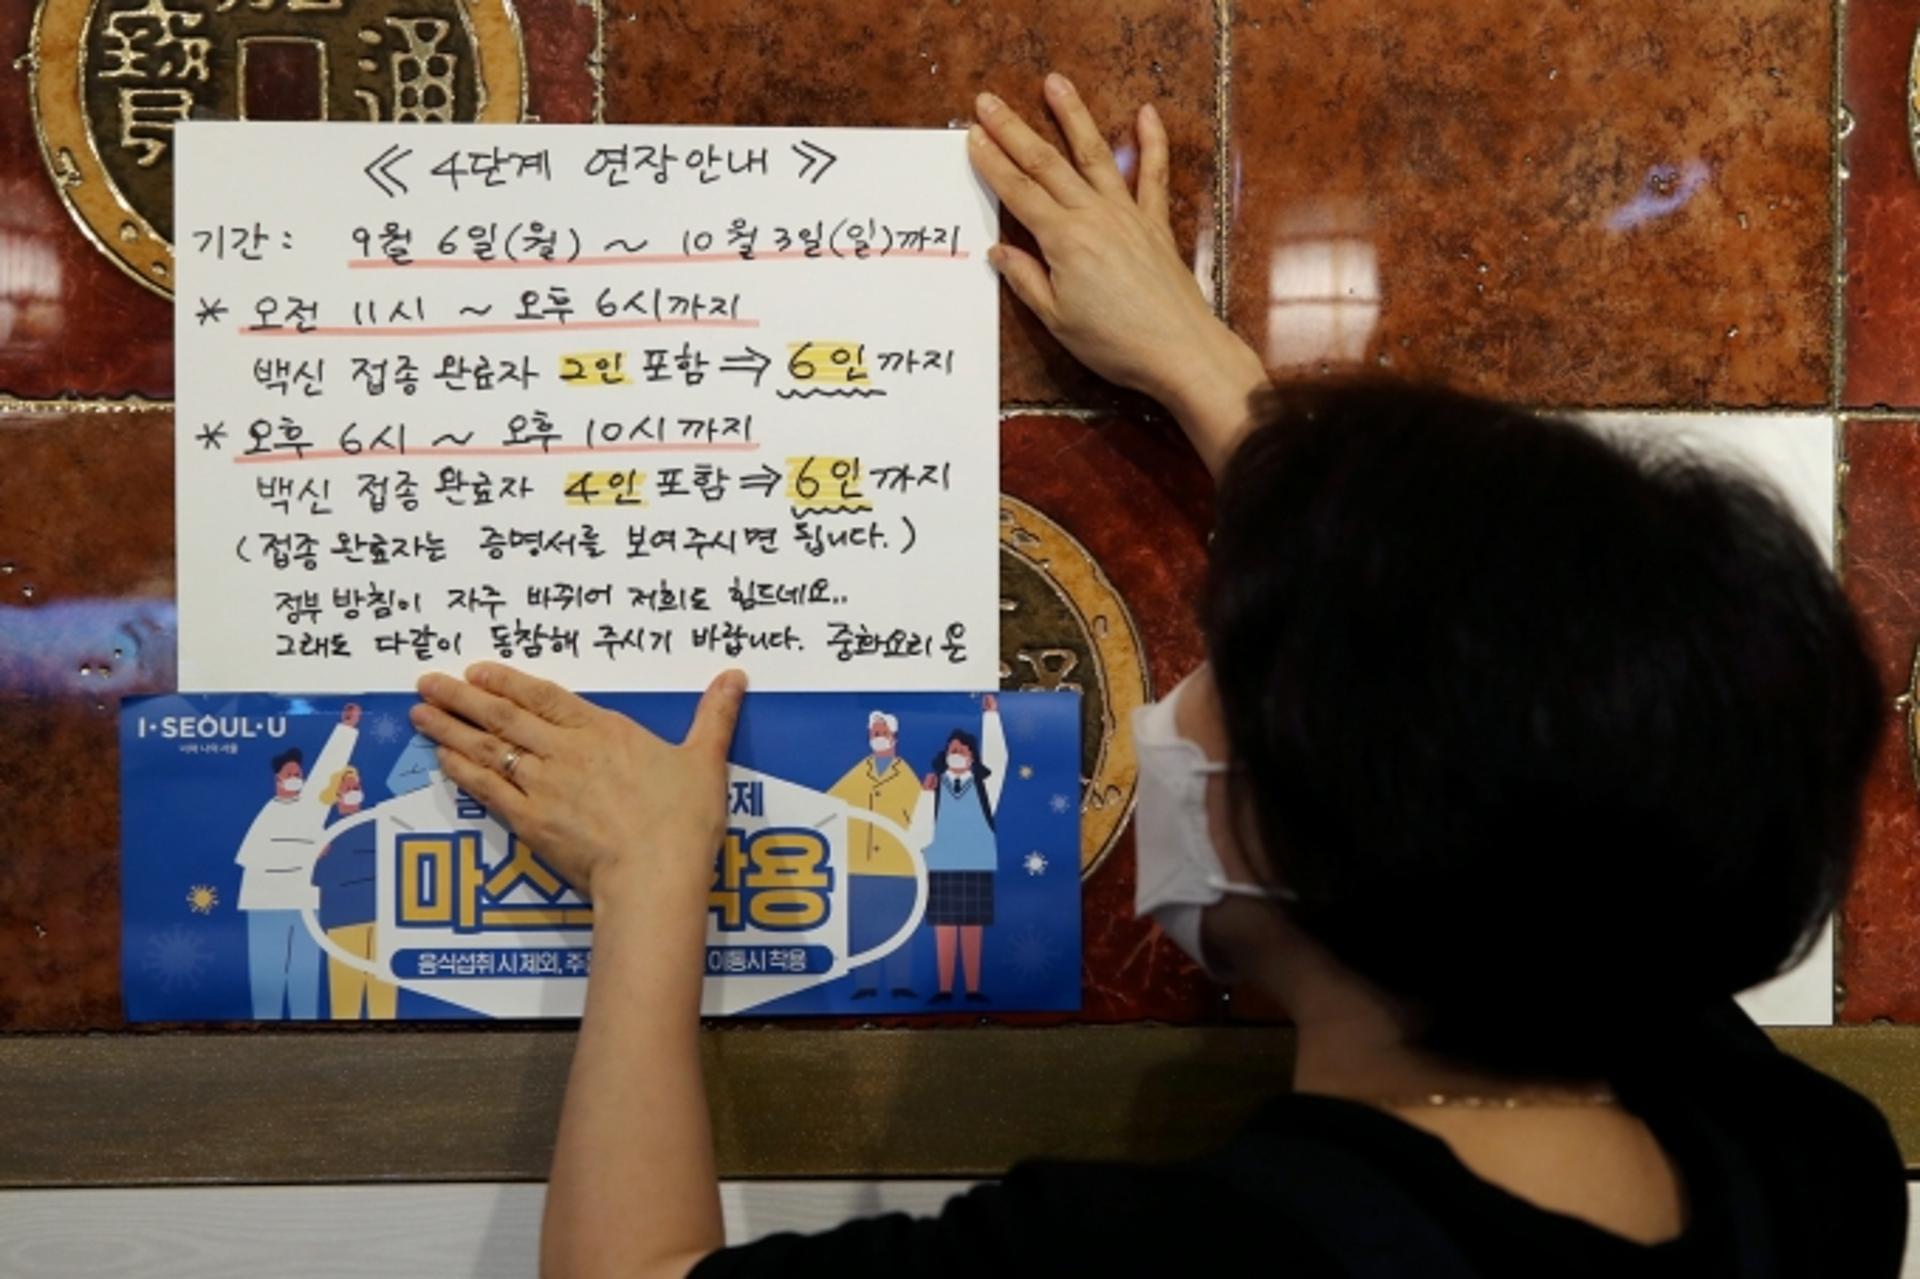 ≪ 4단계 연장안내 ≫
기간: 9월 6일(월) ~ 10월 3일(일)까지
* 오전 11시 ~ 오후 6시까지
백신 접종 완료자 2인 포함 ⇒ 6인까지
* 오후 6시 ~ 오후 10시까지
백신 접종 완료자 4인 포함 ⇒ 6인까지
(접종 완료자는 증명서를 보여주시면 됩니다.)
정부 방침이 자주 바뀌어 저희도 힘드네요..
그래도 다같이 동참해 주시기 바랍니다. 중화요리 온
I·SEOUL·U
너와 나의 서울
제
마스 착용
음식섭취 시 제외, 주 이동시 착용
寶 通